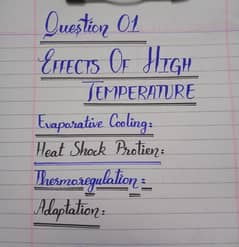 Question 01
EFFECTS OF HIGH
TEMPERATURE
Evaporative Cooling:
Heat Shock Protien:
Thermoregulation:
Adaptation: